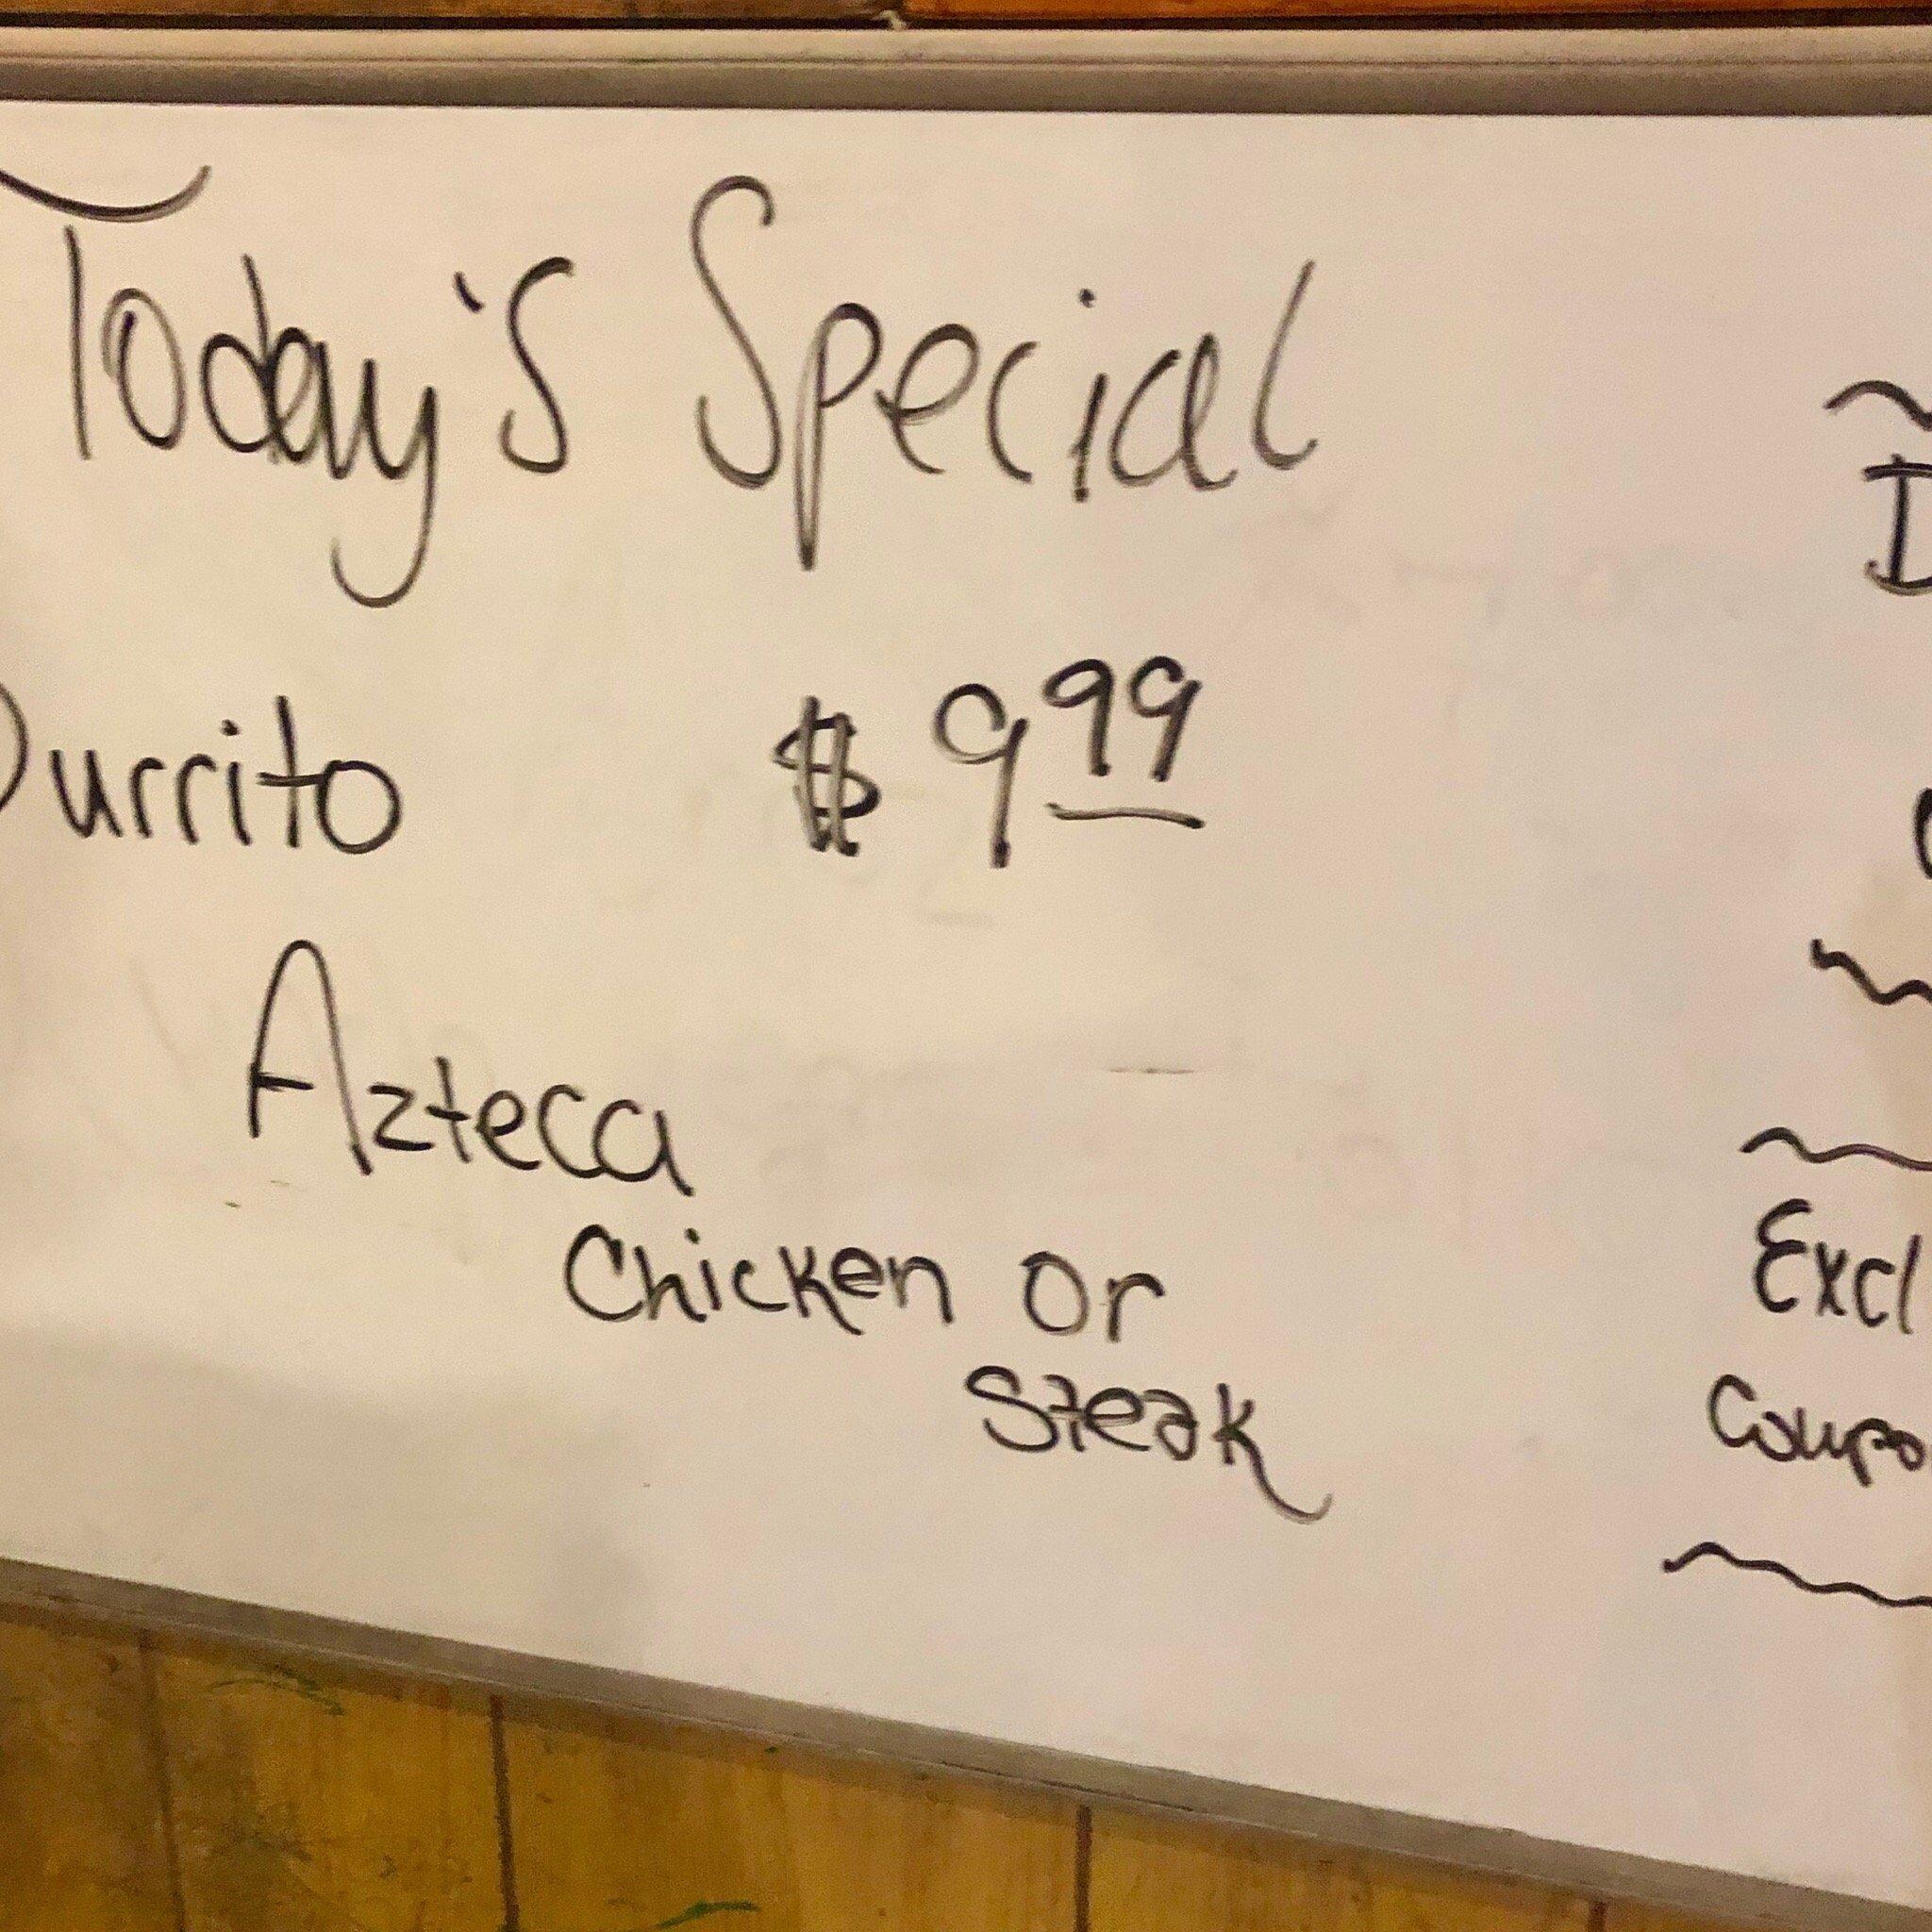 Today's Special
Burrito $9.99
Azteca
Chicken or
Steak
Excl
Coupo